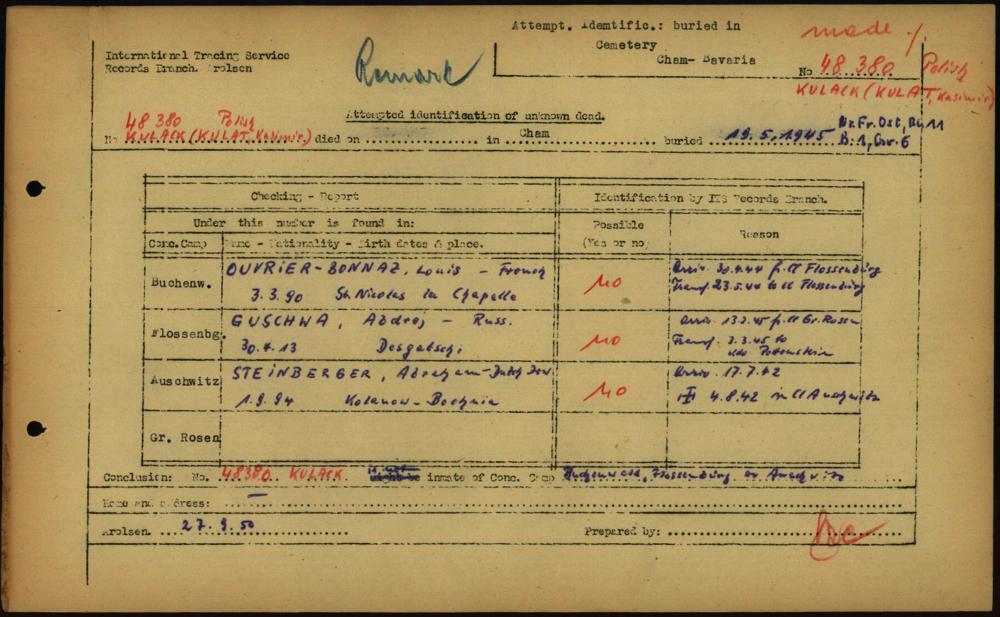 Attempt. Identific.: buried in
Cemetery
Cham- Bavaria
made
Remark
International Tracing Service
Records Branch. Arolsen
No 48 380 Polish
KULACK (KULAT, Kasimir)
Attempted identification of unknown dead.
48 380 Polish
No KULACK (KULAT, Kasimir.) died on in Cham buried 19.5.1945
B.1, Gr. 6
Checking - Report
Identification by ITS Records Branch.
Under this number is found in:
Possible
(Yes or no)
Reason
Conc.Camp
Name - Nationality - Birth dates & place.
Buchenw.
OUVRIER-BONNAZ, Louis - French
3.3.90 St. Nicolas la Chapelle
NO
Arriv. 30.4.44 fr. Cl Flossenbürg
Transf. 23.5.44 to Cl Flossenbürg
Flossenbg.
GUSCHWA, Abdrej - Russ.
30.4.13 Desgatschi
NO
Arriv. 13.2.45 fr. Cl Gr. Rosen
Transf. 3.3.45 to
Auschwitz
STEINBERGER, Abraham- Dutch Jew.
1.9.94 Kolanow-Bochnia
NO
Arriv. 17.7.42
4.8.42 in Cl Auschwitz
Gr. Rosen
Conclusion: No. 48380 KULACK inmate of Conc. Camp Buchenwald, Flossenbürg or Auschwitz
Home and address: —
Arolsen. 27. 9. 50
Prepared by: